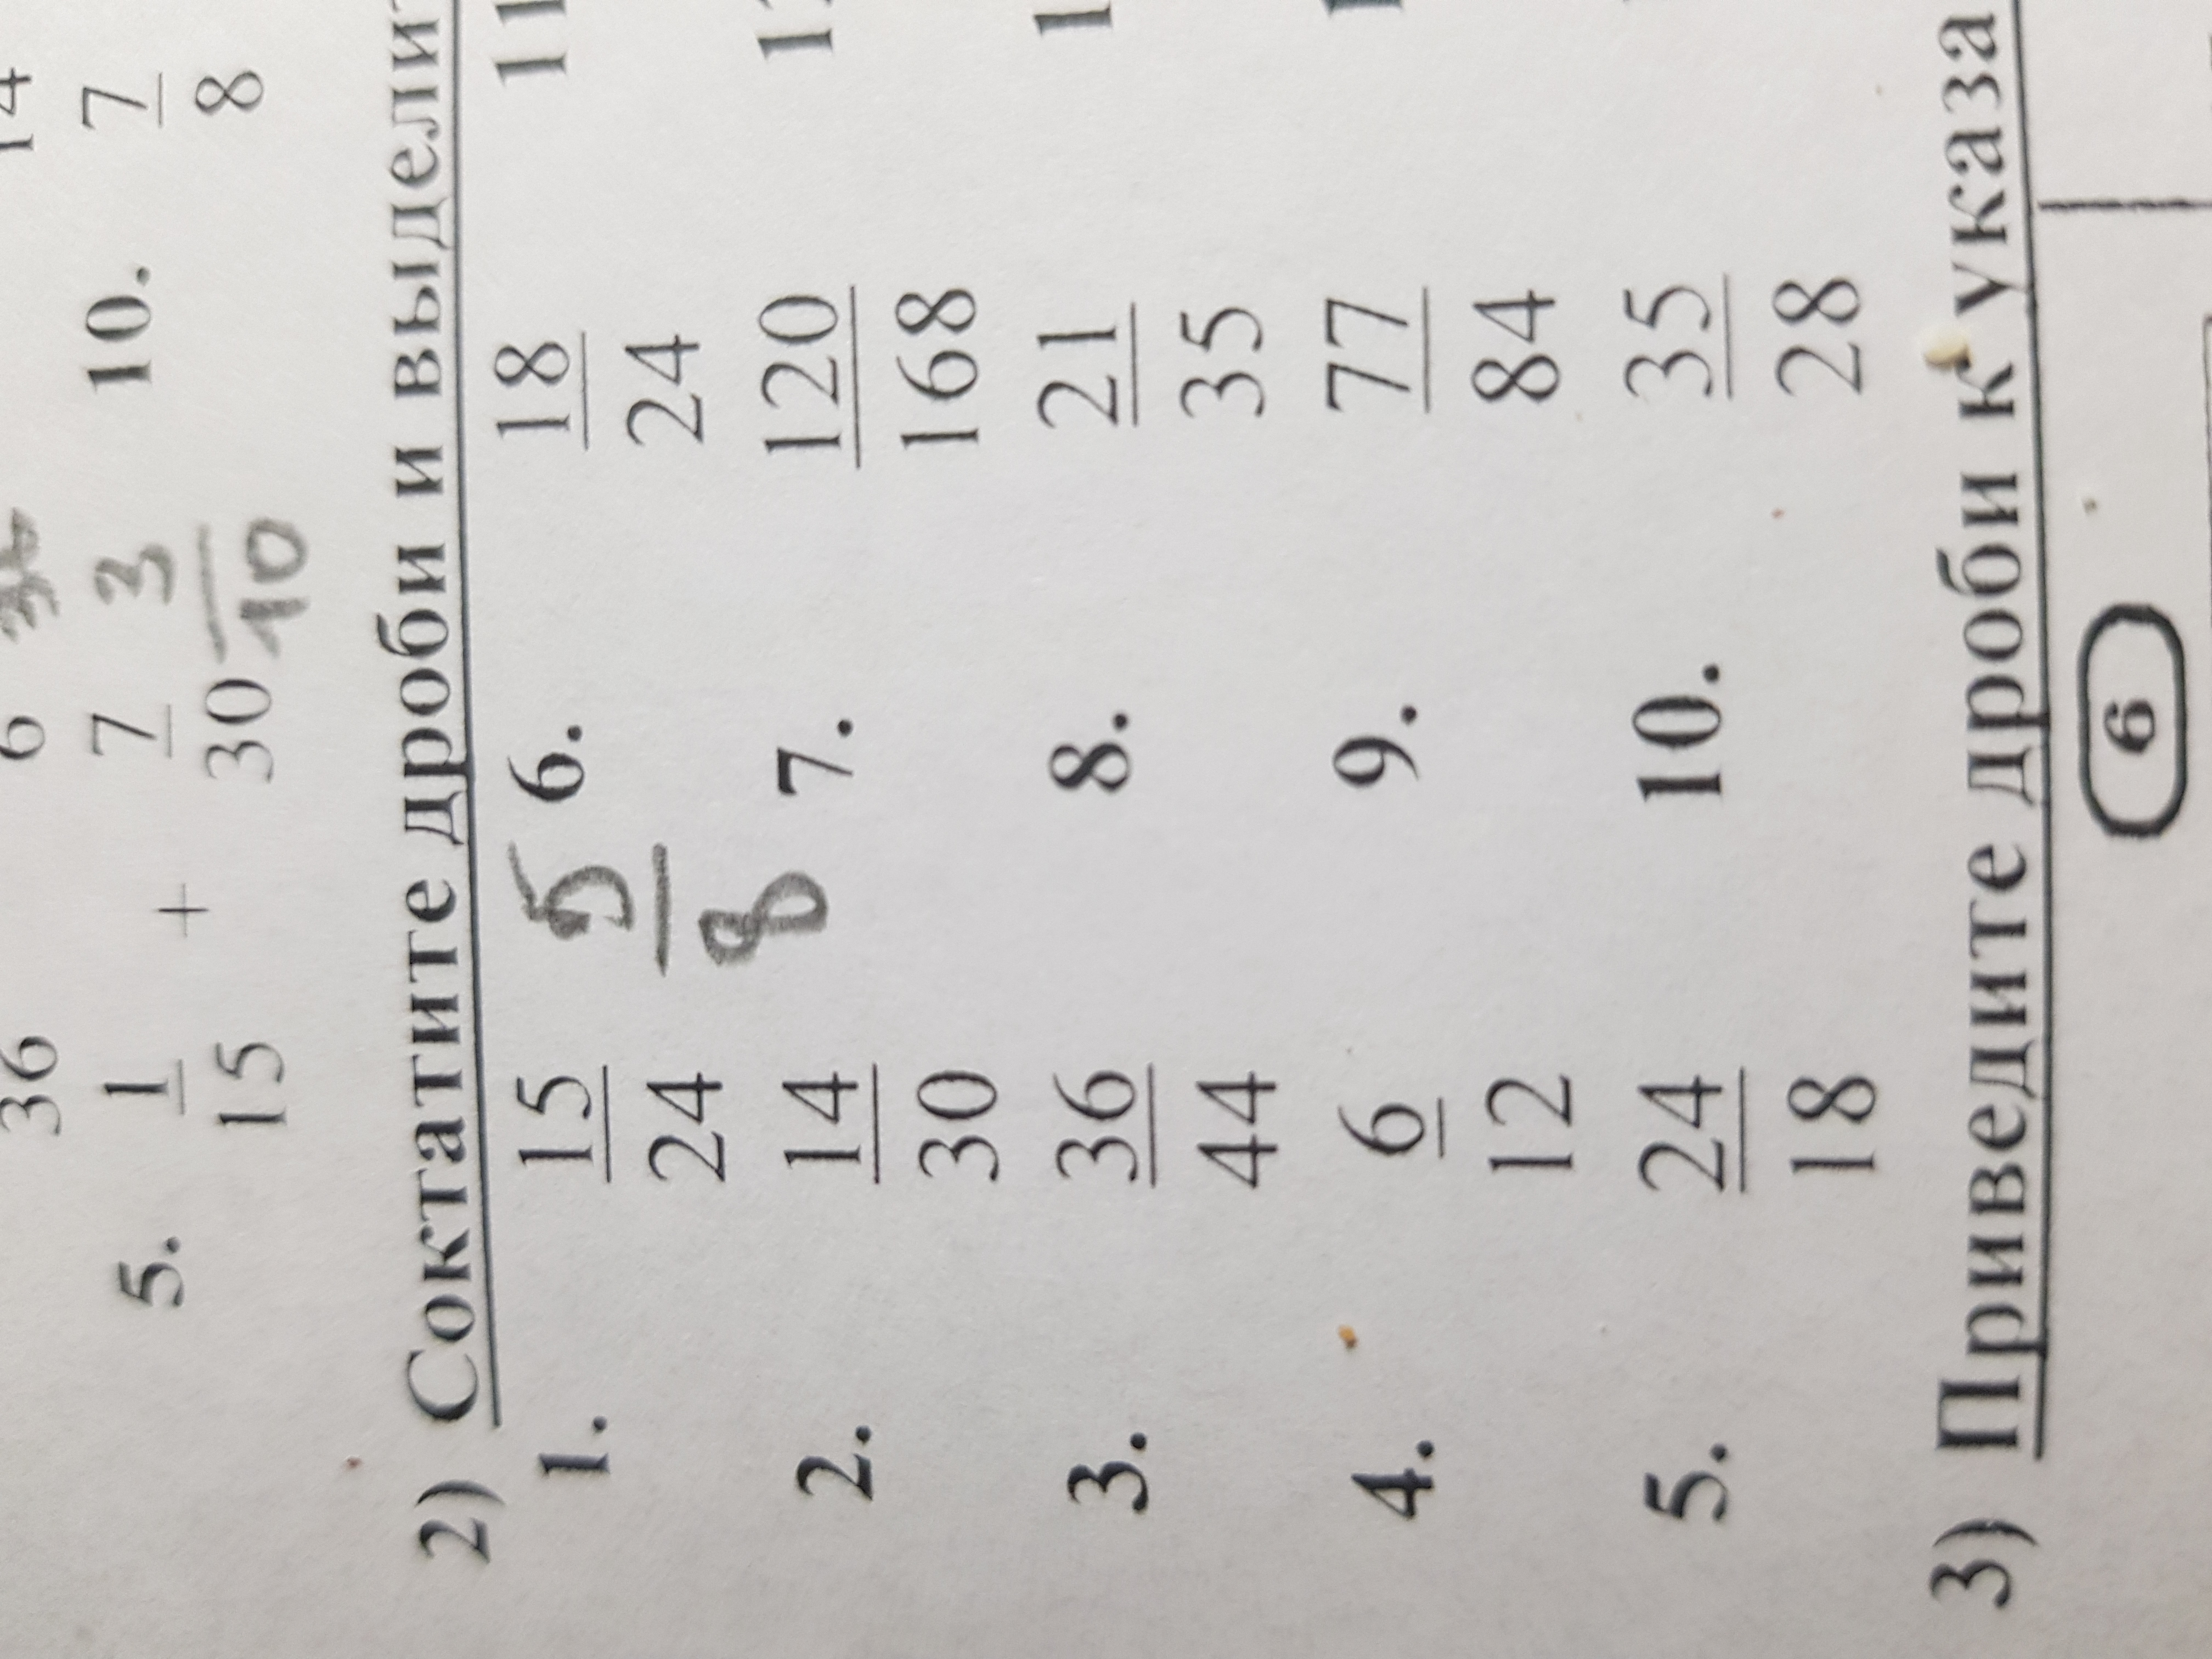 36 6
5. 1/15 + 7/30 3/10 10. 7/8
2) Соктатите дроби и выделит
1. 15/24 5/8 6. 18/24 11
2. 14/30 7. 120/168
3. 36/44 8. 21/35
4. 6/12 9. 77/84
5. 24/18 10. 35/28
3) Приведите дроби к указа
6